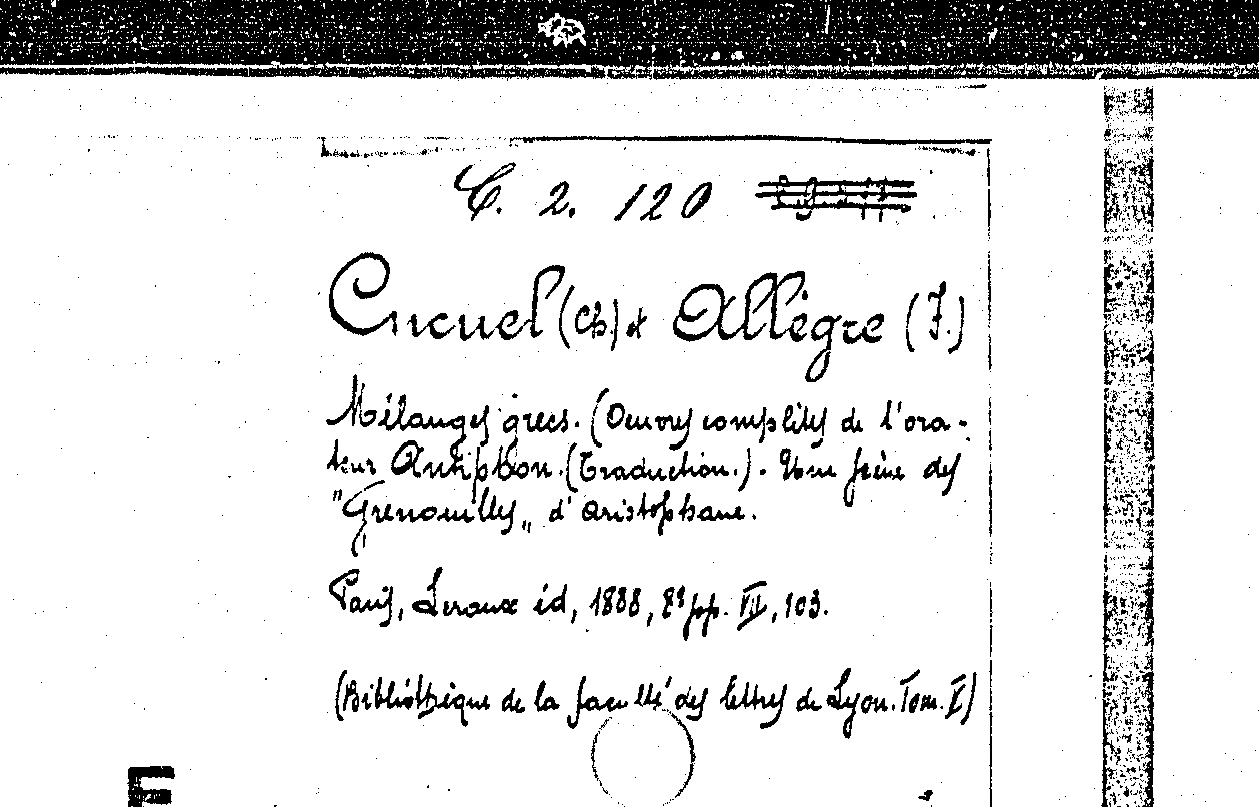 C. 2. 120
Cucuel (Ch) et Allègre (F.)
Mélanges grecs. (Oeuvres complètes de l'ora-
teur Antiphon. (Traduction.). Une scène des
"Grenouilles„ d'Aristophane.
Paris, Leroux éd, 1888, 8° pp. VII, 103.
(Bibliothèque de la faculté des lettres de Lyon. Tom. V)
E